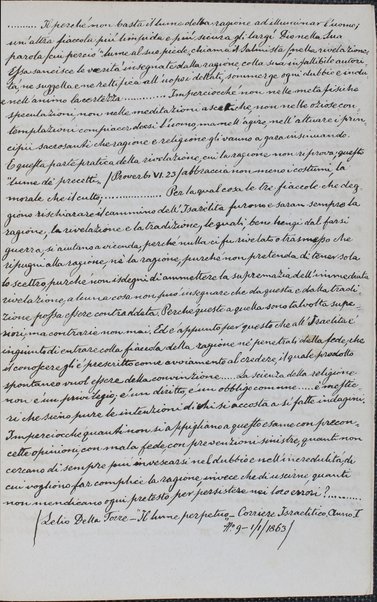 ......... Il perché non basta il lume della ragione ad illuminar l'uomo;
un'altra fiaccola più limpida e più sicura gli largì Dio nella Sua
parola (cui perciò "lume al suo piede, chiama il Salmista) nella rivelazione,
Essa sancisce le verità insegnate dalla ragione colla sua infallibile autori-
tà, ne suggella e ne rettifica all'uopo i dettati, sommerge ogni dubbio e indu-
ce nell'animo la certezza............. Imperciocché non nelle metafisiche
speculazioni, non nelle meditazioni ascetiche, non nelle oziose con-
templazioni compiacer deesi l'uomo, ma nell'agire, nell'attuare i prin-
cipii sacrosanti che ragione e religione gli vanno a gara insinuando.
E questa parte pratica della rivelazione, cui la ragione non riprova, questo
"lume de' precetti, (Proverbi VI. 23) abbraccia non meno i costumi, la
morale che il culto;................ Per la qual cosa le tre fiaccole che deg-
giono rischiarare il cammino dell'Israelita furono e saran sempre la
ragione, la rivelazione e la tradizione, le quali, ben lungi dal farsi
guerra, si aiutano a vicenda, perché nulla ci fu rivelato o trasmesso che
ripugni alla ragione, né la ragione, purché non pretenda di tener sola
lo scettro, purché non isdegni di ammettere la supremazia dell'immediata
rivelazione, alcuna cosa non può insegnare che da questa e dalla tradi-
zione, possa essere contraddetta. Perché queste a quella sono talvolta supe-
riori, ma contrarie non mai. Ed è appunto per questo che all'Israelita è
ingiunto di entrare colla fiaccola della ragione ne' penetrali della fede, che
il conoscere gli è prescritto come avviamento al credere, il quale prodotto
spontaneo vuol essere della convinzione..... La scienza della religione
non è un privilegio, è un diritto, è un obbligo comune..... è mestie-
ri che sieno pure le intenzioni di chi si accosta a sì fatte indagini.
Imperciocché quanti non si appigliano a questo esame con precon-
cette opinioni, con mala fede, con prevenzioni sinistre, quanti non
cercano di sempre più invescarsi nel dubbio e nell'incredulità, di
cui vogliono far complice la ragione, invece che di uscirne, quanti
non mendicano ogni pretesto, per persistere nei loro errori?..........
(Lelio Della Torre - "Il lume perpetuo" - Corriere Israelitico, Anno I
N° 9 - 1/1/1863)